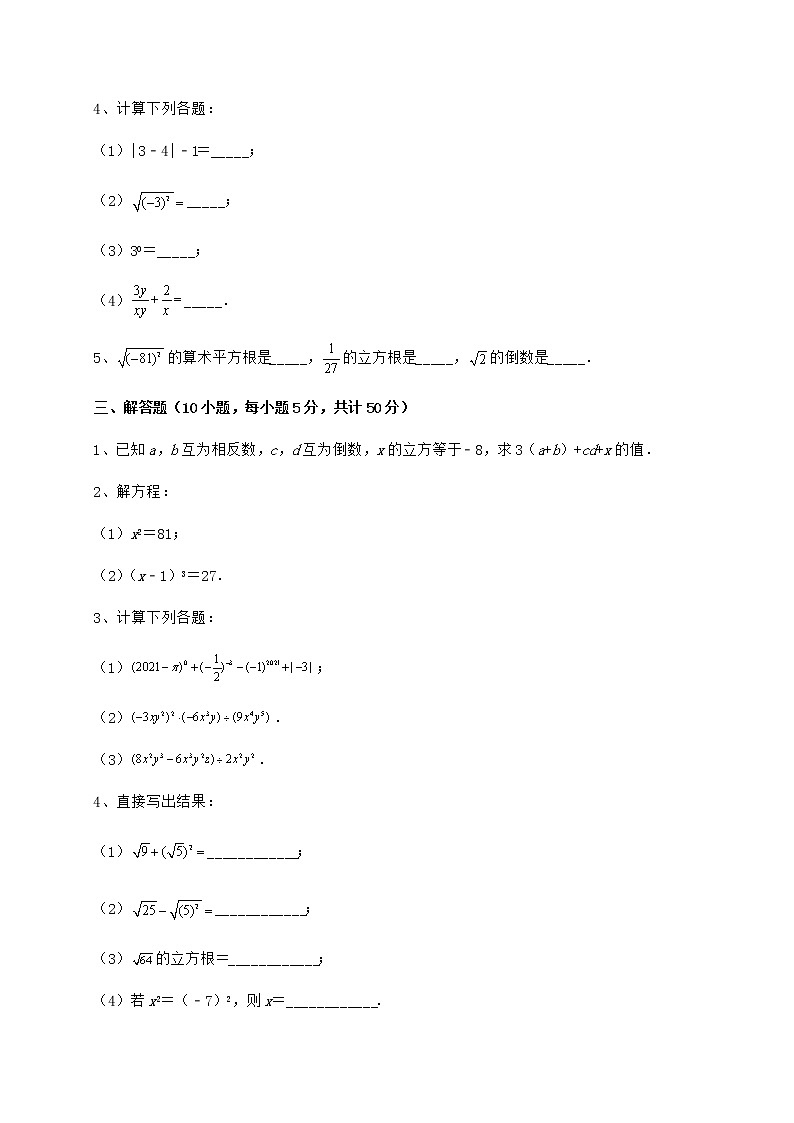 4、计算下列各题:
(1)|3﹣4|﹣1=_____;
(2)√(−3)² =_____;
(3)3⁰=_____;
(4)3y/xy + 2/x =_____.
5、√(−81)² 的算术平方根是_____,1/27 的立方根是_____,√2 的倒数是_____.
三、解答题(10小题,每小题5分,共计50分)
1、已知a,b互为相反数,c,d互为倒数,x的立方等于﹣8,求3(a+b)+cd+x的值.
2、解方程:
(1)x²=81;
(2)(x﹣1)³=27.
3、计算下列各题:
(1)(2021−π)⁰+(−1/2)⁻²−(−1)²⁰²¹+|−3|;
(2)(−3xy²)²·(−6x³y)÷(9x⁴y⁵).
(3)(8x²y³−6x³y²z)÷2x²y².
4、直接写出结果:
(1)√9+(√5)²=____________;
(2)√25−√(5)²=____________;
(3)√64的立方根=____________;
(4)若x²=(﹣7)²,则x=____________.